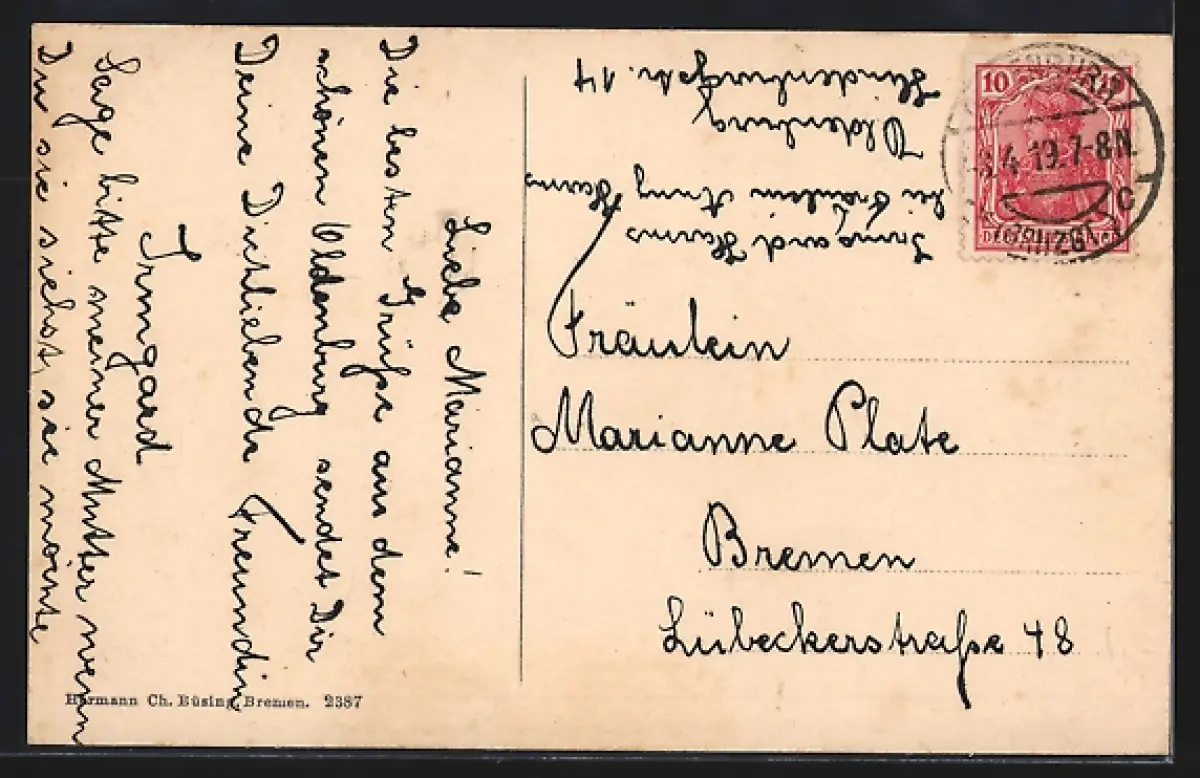 Liebe Marianne!
Die besten Grüße aus dem
schönen Oldenburg sendet Dir
Deine Dichliebende Freundin
Irmgard
Sage bitte meiner Mutter wenn
Du sie siehst, sie möchte
Irmgard Harms
bei Fräulein Anny Harms
Oldenburg
Hindenburgstr. 14
10
4.19.7-8N.
C
(GRHZGT.)
Fräulein
Marianne Plate
Bremen
Lübeckerstraße 48
Hermann Ch. Büsing, Bremen. 2387